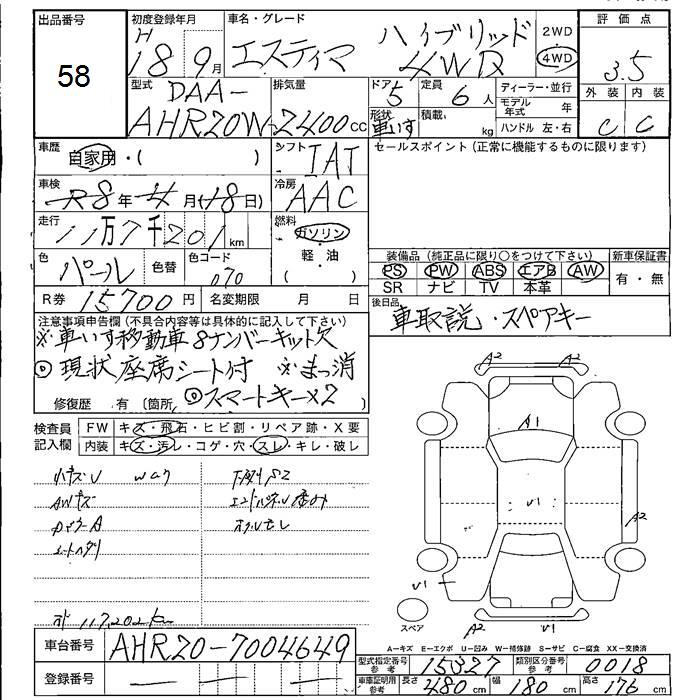 出品番号 初度登録年月 車名・グレード 評価点
58
H 18 9月 エスティマ ハイブリッド 4WD 2WD 4WD 3.5
型式 DAA- AHR20W 排気量 2400cc ドア 5 定員 6人 ディーラー・並行 外装 内装
形状 車いす 積載 kg モデル年式 年 ハンドル 左・右 C C
車歴 自家用・( ) シフト IAT セールスポイント(正常に機能するものに限ります)
車検 R8年 4月(18日) 冷房 AAC
走行 11万7千201km 燃料 ガソリン・軽油
色 パール 色替 色コード 070 装備品(純正品に限り○をつけて下さい) 新車保証書
PS PW ABS エアB AW 有・無
SR ナビ TV 本革
R券 15700円 名変期限 月 日 後日品 車取説・スペアキー
注意事項申告欄(不具合内容等は具体的に記入して下さい)
※車いす移動車8ナンバーキット欠
◎現状座席シート付 ※まっ消
◎スマートキー×2
修復歴 有(箇所 )
検査員記入欄 FW キズ・飛石・ヒビ割・リペア跡・X要
内装 キズ・汚レ・コゲ・穴・スレ・キレ・破レ
小キズU Wコク 下廻りS2
AWキズ
A2
A1
U1
A2
U1
スペア
A2 U1
117,202km
車台番号 AHR20-7004649
A-キズ E-エクボ U-凹み W-補修跡 S-サビ C-腐食 XX-交換済
登録番号 型式指定番号 参考 15327 類別区分番号 参考 0018
車庫証明用 参考 長さ 480cm 幅 180cm 高さ 176cm